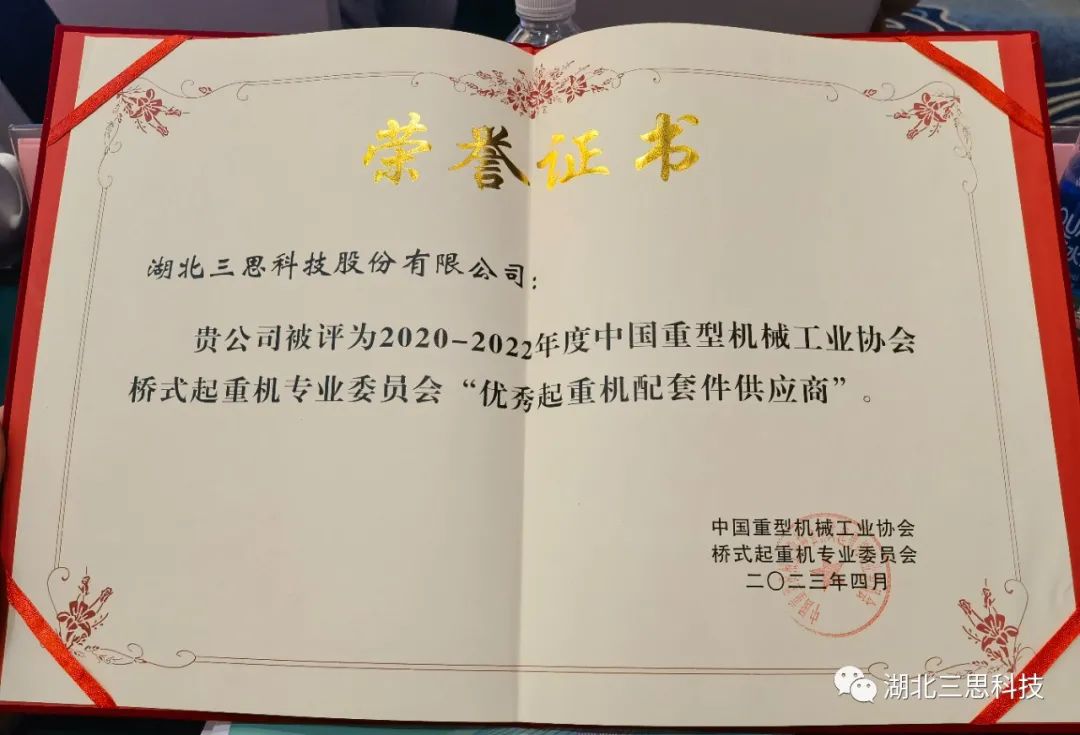 荣誉证书
湖北三思科技股份有限公司：
贵公司被评为2020-2022年度中国重型机械工业协会
桥式起重机专业委员会“优秀起重机配套件供应商”。
中国重型机械工业协会
桥式起重机专业委员会
二〇二三年四月
湖北三思科技